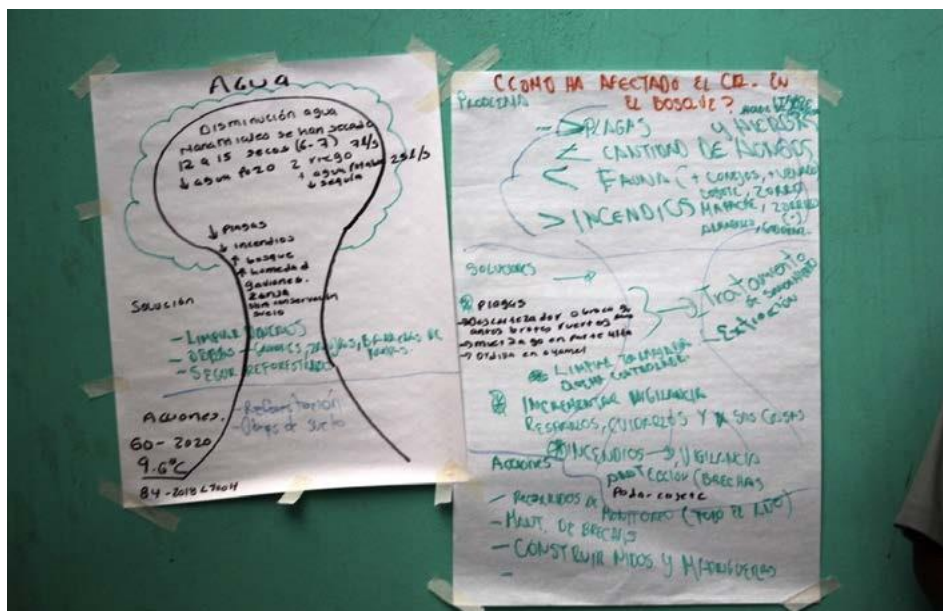 AGUA
Disminución agua
Manantiales se han secado
12 a 15 secos (6-7) 7l/s
↓ agua pozo 2 riego
+ agua potable 25 l/s
↓ sequía
↓ Plagas
↓ incendios
↑ bosque
↑ humedad
gaviones.
zanja
conservación
suelo
Solución
- LIMPIAR
- OBRAS - GAVIONES, ZANJAS, BARRERAS DE
- SEGUIR REFORESTANDO
Acciones.
- Reforestación
- Obras de suelo
60 - 2020
9.6°C
84 - 2018
¿COMO HA AFECTADO EL CC. EN
EL BOSQUE?
PROBLEMA
- > PLAGAS Y
< CANTIDAD DE HONGOS
< FAUNA (+ CONEJOS, + VENADO
COYOTE, ZORRA
> INCENDIOS MAPACHE, ZORRILLO
ARMADILLO,
SOLUCIONES
Plagas
→ Descortezador
antes brotes fuertes
→ muerdago en parte alta
→ en oyamel
→ Tratamiento
de saneamiento
- Extinción
LIMPIAR
QUEMA CONTROLADA.
INCREMENTAR VIGILANCIA
RESPETARLOS, CUIDARLOS Y A SUS CASAS
INCENDIOS → VIGILANCIA
ACCIONES
PROTECCIÓN (BRECHAS
Podar-cajete
- RECORRIDOS DE MONITOREO (TODO EL AÑO)
- MANT. DE BRECHAS
- CONSTRUIR NIDOS Y MADRIGUERAS